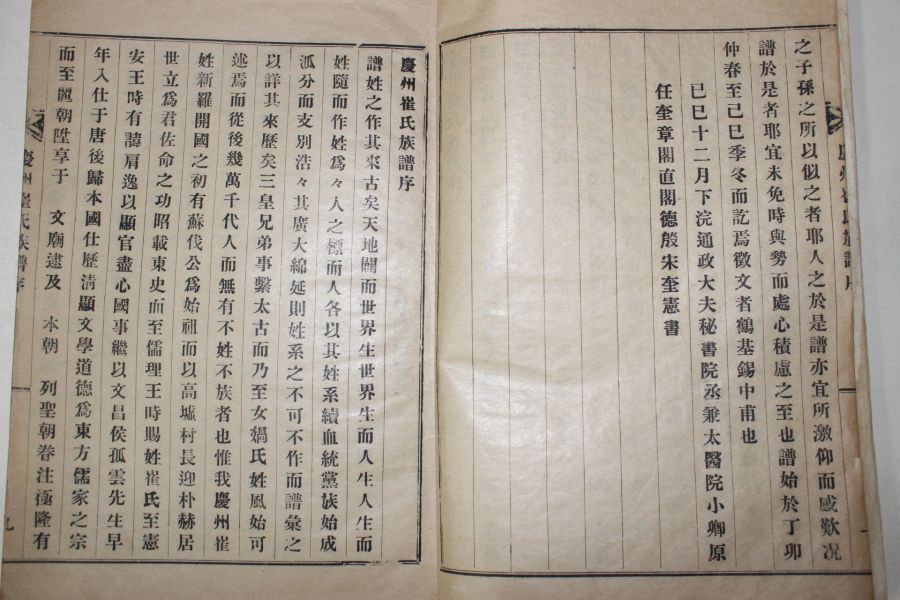 之子孫之所以似之者耶人之於是譜亦宜所激仰而感歎況
譜於是者耶宜未免時與勢而處心積慮之至也譜始於丁卯
仲春至己巳季冬而訖焉徵文者鶴基錫中甫也
己巳十二月下浣通政大夫秘書院丞兼太醫院小卿原
任奎章閣直閣德殷宋奎憲書
慶州崔氏族譜序
慶州崔氏族譜序
譜姓之作其來古矣天地闢而世界生世界生而人生人生而
姓隨而作姓爲々人之標而人各以其姓系續血統黨族始成
派分而支別浩々其廣大綿延則姓系之不可不作而譜彙之
以詳其來歷矣三皇兄弟事繫太古而乃至女媧氏姓風始可
述焉而從後幾萬千代人而無有不姓不族者也惟我慶州崔
姓新羅開國之初有蘇伐公爲始祖而以高墟村長迎朴赫居
世立爲君佐命之功昭載東史而至儒理王時賜姓崔氏至憲
安王時有諱肩逸以顯官盡心國事繼以文昌侯孤雲先生早
年入仕于唐後歸本國仕歷淸顯文學道德爲東方儒家之宗
而至麗朝陞享于 文廟逮及 本朝 列聖朝眷注極隆有
慶州崔氏族譜序
九